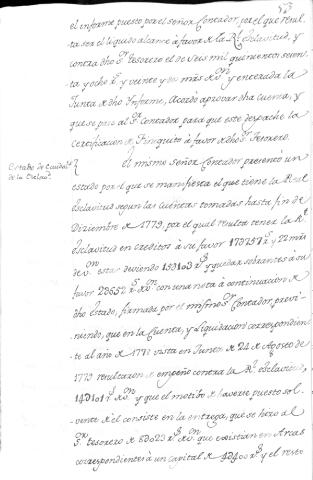 el informe puesto por el señor Contador, por el que resul
ta ser el liquido alcance à favor de la Rl. Esclavitud, y
contra dho Sr. tesorero el de seis mil quinientos seten
ta y ocho rs. y veinte y un mas de von. y enterada la
Junta de dho Informe, Acordò aprovar dha cuenta, y
que se pase al Sr. Contador para que este despache la
Certificacion de Finiquito à favor de dho Sr. Tesorero.
Estado de Caudals.
de la Esclavd.
El mismo Señor Contador, presentò un
estado por el que se manifiesta el que tiene la Real
Esclavitud segun las cuentas tomadas hasta fin de
Diziembre de 1779, por el qual resulta tener la Rl.
Esclavitud en creditos à su favor rs. y 22 mrs
de von. esta deviendo rs. y quedar sobrantes à su
favor rs. de von. con una nota à continuacion de
dho Estado, firmada por el mismo Sr. Contador, previ
niendo, que en la Cuenta, y Liquidacion correspondien
te al año de 1778 vista en Junta de 24 de Agosto de
1779 resultaron de empeño contra la Rl. Esclavitud,
rs. de von. y que el motibo de haverse puesto sol
vente de èl consiste en la entrega, que se hizo al
Sr. tesorero de rs. de von. que existian en Arcas
correspondientes à un capital de rs. y el resto